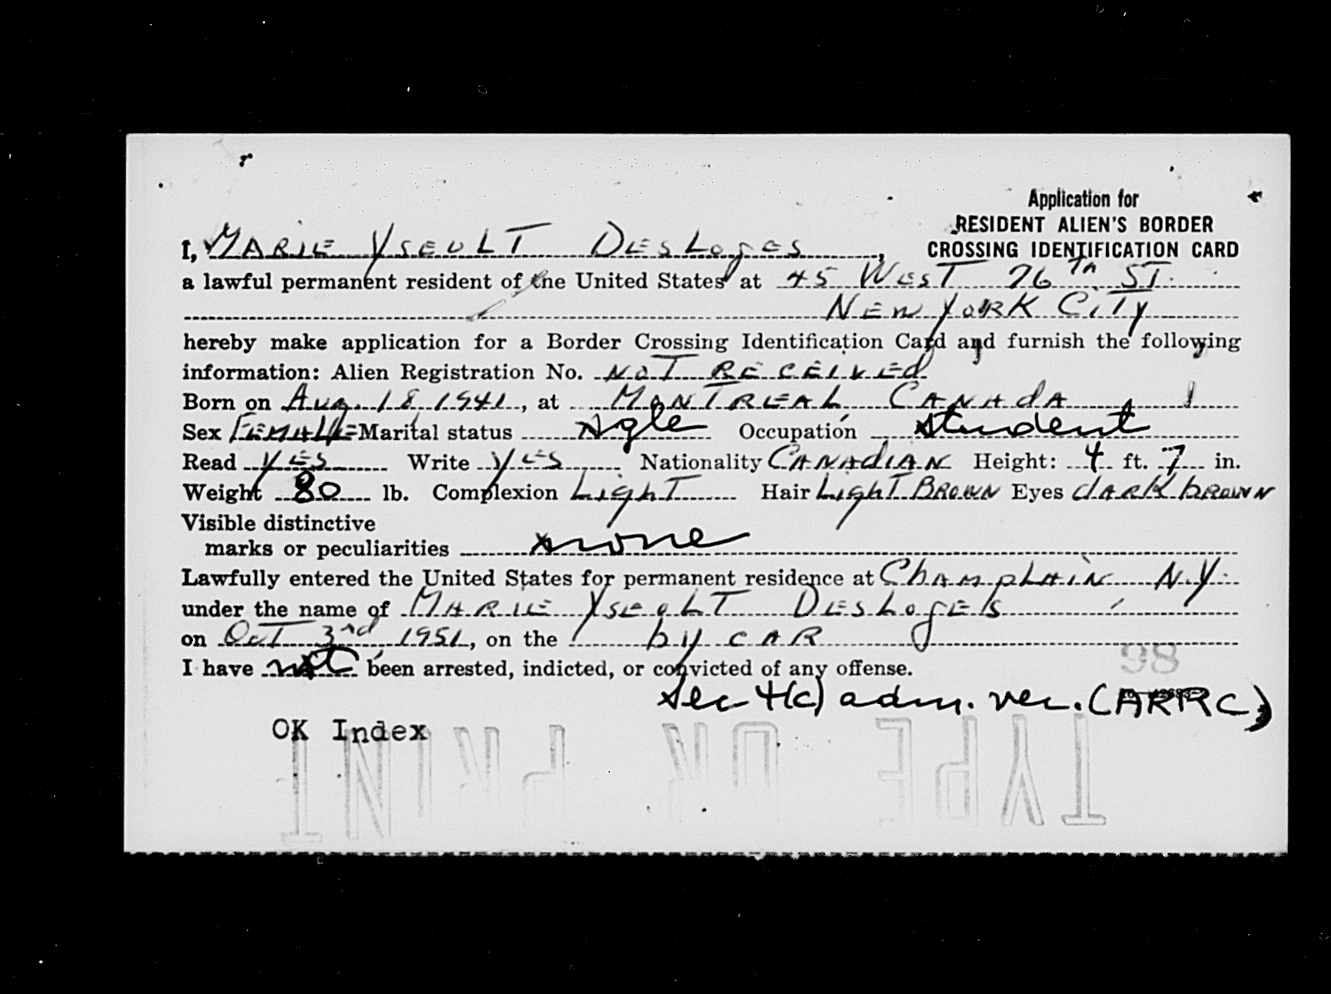 Application for
RESIDENT ALIEN'S BORDER
CROSSING IDENTIFICATION CARD
I, MARIE YSEULT DESLOGES,
a lawful permanent resident of the United States at 45 WEST 76TH ST.
NEW YORK CITY
hereby make application for a Border Crossing Identification Card and furnish the following
information: Alien Registration No. NOT RECEIVED
Born on Aug. 18 1941, at MONTREAL, CANADA
Sex FEMALE Marital status Sgle Occupation student
Read YES Write YES Nationality CANADIAN Height: 4 ft. 7 in.
Weight 80 lb. Complexion LIGHT Hair LIGHT BROWN Eyes dARK bROWN
Visible distinctive
marks or peculiarities none
Lawfully entered the United States for permanent residence at CHAMPLAIN N.Y.
under the name of MARIE YSEULT DESLOGES
on OCT 3rd, 1951, on the by CAR
I have not been arrested, indicted, or convicted of any offense.
98
Sec 4(c) adm. ver. (ARRC)
OK Index
TYPE OR PRINT